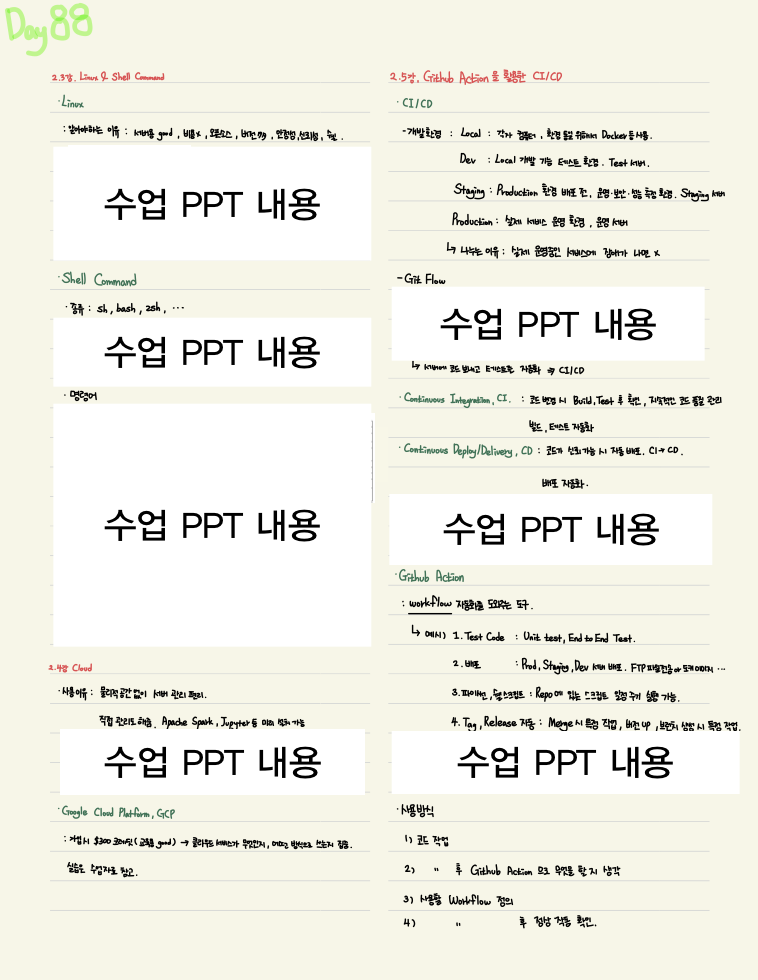 Day 88
2.3강. Linux & Shell Command
· Linux
: 알아야하는 이유 : 서버용 good, 비용x, 오픈소스, 버전 many, 안정성, 신뢰성,
수업 PPT 내용
· Shell Command
· 종류 : sh, bash, zsh, ...
수업 PPT 내용
· 명령어
수업 PPT 내용
2.4강 Cloud
· 사용이유 : 물리적공간 없이 서버 관리 편리.
직접 관리도 해줌. Apache Spark, Jupyter 등 미리 설치 가능
수업 PPT 내용
· Google Cloud Platform, GCP
: 가입시 $300 크레딧(교육용 good) → 클라우드 서비스가 무엇인지, 어떤 방식으로 쓰는지 집중.
실습은 수업자료 참고.
2.5강. Github Action을 활용한 CI/CD
· CI/CD
- 개발환경 : Local : 각자 컴퓨터, 환경 통일 위해서 Docker 등 사용.
Dev : Local 개발 기능 테스트 환경. Test 서버.
Staging : Production 환경 배포 전, 운영·보안·성능 측정 환경. Staging 서버
Production : 실제 서비스 운영 환경, 운영 서버
↳ 나누는 이유 : 실제 운영중인 서비스에 장애가 나면 x
- Git Flow
수업 PPT 내용
↳ 서버에 코드 보내고 테스트를 자동화 ⇒ CI/CD
· Continuous Integration, CI. : 코드 변경 시 Build, Test 후 확인, 지속적인 코드 품질 관리
빌드, 테스트 자동화
· Continuous Deploy/Delivery, CD : 코드가 신뢰가능 시 자동 배포. CI → CD.
배포 자동화.
수업 PPT 내용
· Github Action
: workflow 자동화를 도와주는 도구.
↳ 예시) 1. Test Code : Unit test, End to End Test.
2. 배포 : Prod, Staging, Dev 서버 배포. FTP 파일전송 or 도커이미지 ...
3. 파이썬, 쉘 스크립트 : Repo에 있는 스크립트 일정 주기 실행 가능.
4. Tag, Release 자동 : Merge 시 특정 작업, 버전 up, 브랜치 생성 시 특정 작업.
수업 PPT 내용
· 사용방식
1) 코드 작업
2) " 후 Github Action 으로 무엇을 할지 생각
3) 사용할 Workflow 정의
4) " 후 정상 작동 확인.